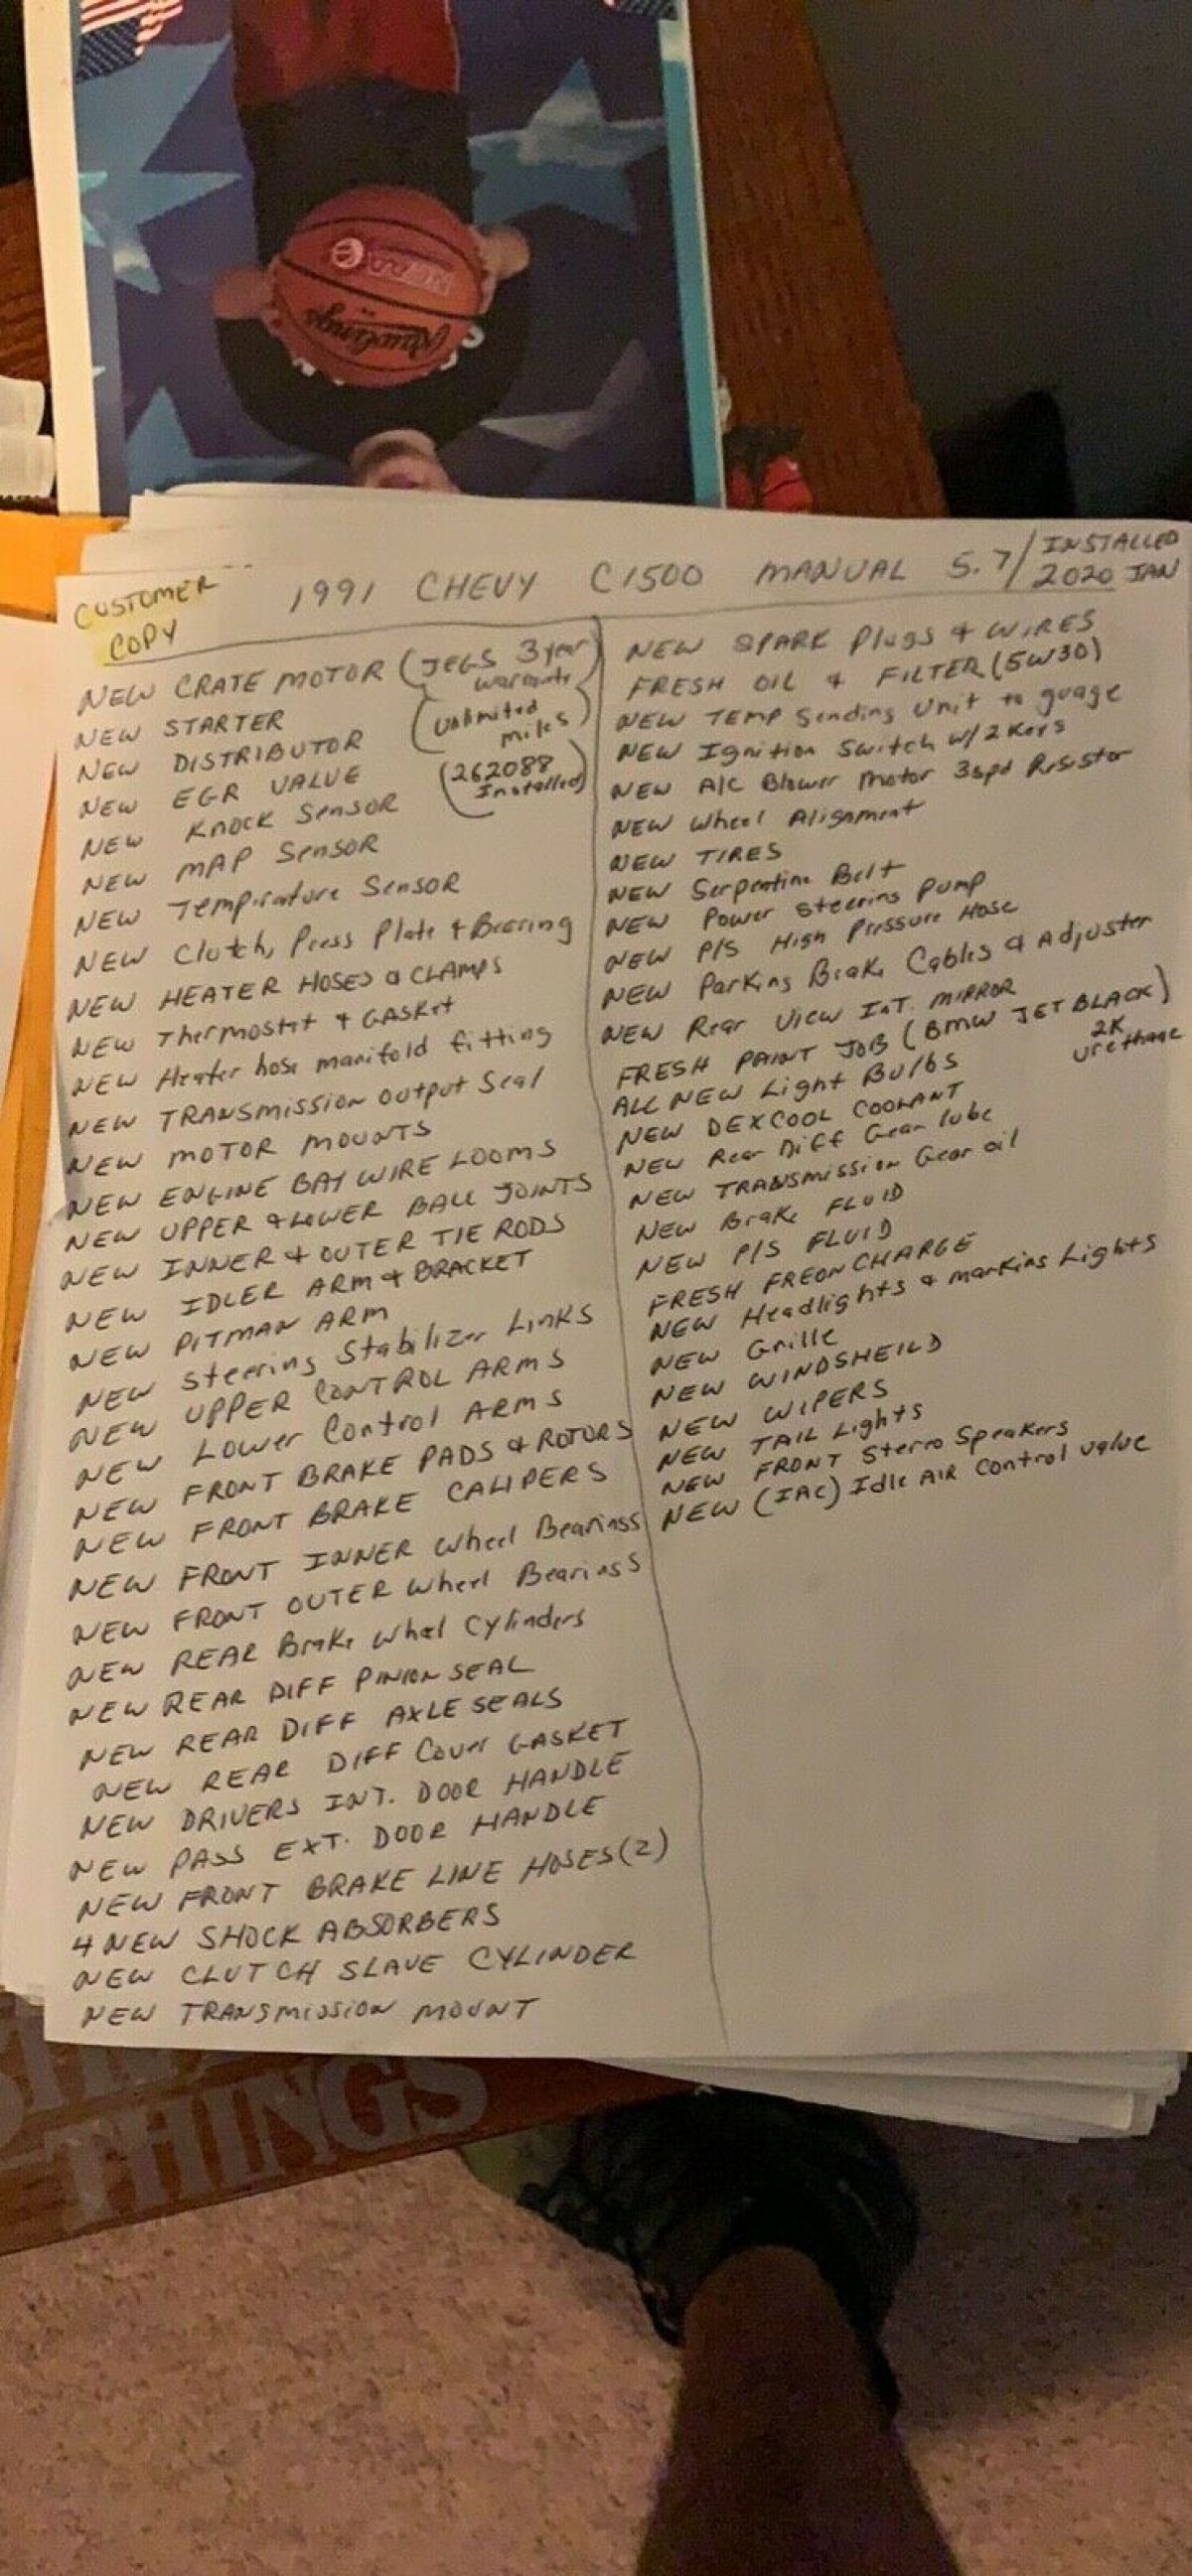 Rawlings
CUSTOMER COPY
1991 CHEVY C1500 MANUAL 5.7/ INSTALLED 2020 JAN
NEW CRATE MOTOR (JEGS 3 year warranty)
(Unlimited miles)
(262088 Installed)
NEW STARTER
NEW DISTRIBUTOR
NEW EGR VALUE
NEW KNOCK SENSOR
NEW MAP SENSOR
NEW Temperature SENSOR
NEW Clutch, Press Plate & Bearing
NEW HEATER HOSES & CLAMPS
NEW Thermostat & GASKet
NEW Heater hose manifold fitting
NEW TRANSmission output Seal
NEW MOTOR MOUNTS
NEW ENGINE BAY WIRE LOOMS
NEW UPPER & LOWER BALL JOINTS
NEW INNER & OUTER TIE RODS
NEW IDLER ARM & BRACKET
NEW PITMAN ARM
NEW Steering Stabilizer Links
NEW UPPER CONTROL ARMS
NEW Lower Control ARMS
NEW FRONT BRAKE PADS & ROTORS
NEW FRONT BRAKE CALIPERS
NEW FRONT INNER Wheel Bearings
NEW FRONT OUTER Wheel Bearings
NEW REAR Brake Wheel Cylinders
NEW REAR DIFF PINION SEAL
NEW REAR DIFF AXLE SEALS
NEW REAR DIFF Cover GASKET
NEW DRIVERS INT. DOOR HANDLE
NEW PASS EXT. DOOR HANDLE
NEW FRONT BRAKE LINE HOSES (2)
4 NEW SHOCK ABSORBERS
NEW CLUTCH SLAVE CYLINDER
NEW TRANSmission MOUNT
NEW SPARK Plugs & WIRES
FRESH OIL & FILTER (5W30)
NEW TEMP Sending Unit to guage
NEW Ignition Switch w/ 2 Keys
NEW A/C Blower Motor 3spd Resistor
NEW Wheel Alignment
NEW TIRES
NEW Serpentine Belt
NEW Power Steering Pump
NEW P/S High Pressure Hose
NEW Parking Brake Cables & Adjuster
NEW Rear View INT. MIRROR
FRESH PAINT JOB (BMW JET BLACK)
2K urethane
ALL NEW Light Bulbs
NEW DEXCOOL COOLANT
NEW Rear Diff Gear lube
NEW TRANSmission Gear oil
NEW Brake FLUID
NEW P/S FLUID
FRESH FREON CHARGE
NEW Headlights & marking Lights
NEW Grille
NEW WINDSHEILD
NEW WIPERS
NEW TAIL Lights
NEW FRONT Stereo Speakers
NEW (IAC) Idle AIR Control value
THINGS